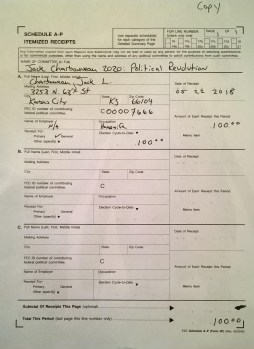 Copy
SCHEDULE A-P
ITEMIZED RECEIPTS
Use separate schedule(s)
for each category of the
Detailed Summary Page
FOR LINE NUMBER:
NAME OF COMMITTEE (In Full)
Jack Charbonneau 2020: Political Revolution
A. Full Name (Last, First, Middle Initial)
Charbonneau, Jack L
Mailing Address
3253 N. 63rd St
City State Zip Code
Kansas City KS 66104
FEC ID number of contributing
federal political committee.
C00007666
Name of Employer
Occupation
Receipt For:
Primary General
Other (specify)
Election Cycle-to-Date
100.00
Date of Receipt
05 22 2018
Amount of Each Receipt this Period
100.00
Memo Item
B. Full Name (Last, First, Middle Initial)
Mailing Address
City State Zip Code
FEC ID number of contributing
federal political committee.
C
Name of Employer
Occupation
Receipt For:
Primary General
Other (specify)
Election Cycle-to-Date
Date of Receipt
Amount of Each Receipt this Period
Memo Item
C. Full Name (Last, First, Middle Initial)
Mailing Address
City State Zip Code
FEC ID number of contributing
federal political committee.
C
Name of Employer
Occupation
Receipt For:
Primary General
Other (specify)
Election Cycle-to-Date
Date of Receipt
Amount of Each Receipt this Period
Memo Item
Subtotal Of Receipts This Page (optional)
Total This Period (last page this line number only)
100.00